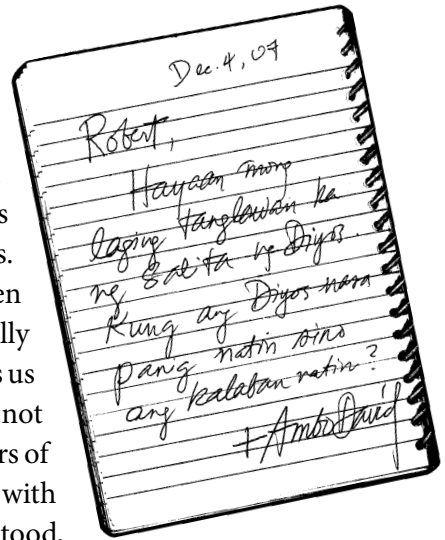 Dec. 4, 07
Robert,
Hayaan mong
laging tanglawan ka
ng Salita ng Diyos.
Kung ang Diyos nasa
panig natin sino
ang kalaban natin?
+Ambo David
s
s.
en
lly
s us
not
rs of
with
stood.